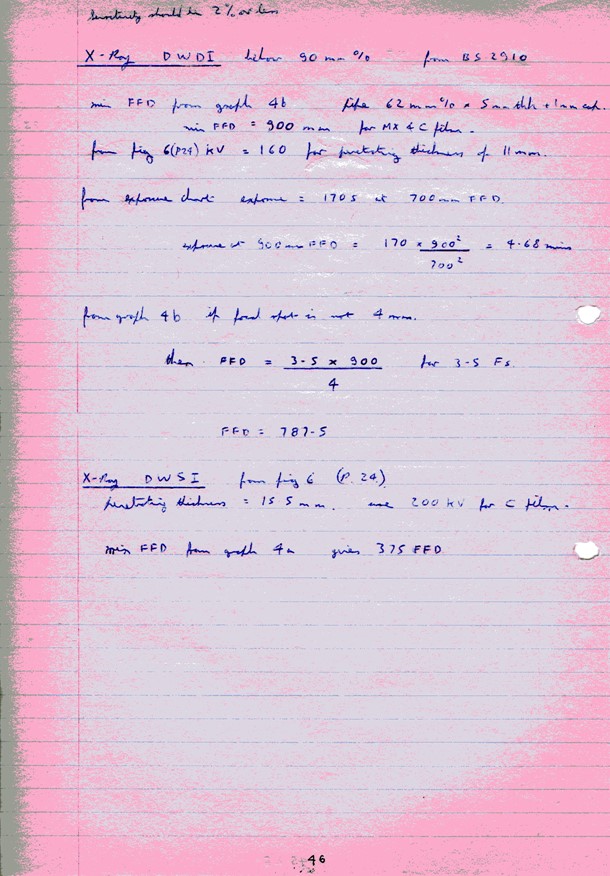 Sensitivity should be 2% or less
X-Ray DWDI below 90 mm o/o from BS 2910
min FFD from graph 4b pipe 62 mm o/o x 5mm thk + 1mm cap.
min FFD = 900 mm for MX & C film.
from fig 6 (P24) KV = 160 for penetrating thickness of 11mm.
from exposure chart exposure = 170s at 700mm FFD
exposure at 900mm FFD = 170 x 900² / 700² = 4.68 mins
from graph 4b if focal spot is not 4 mm.
then FFD = 3-5 x 900 / 4 for 3-5 Fs.
FFD = 787-5
X-Ray DWSI from fig 6 (P. 24)
penetrating thickness = 15 5mm. use 200 KV for C film.
min FFD from graph 4a gives 375 FFD
46